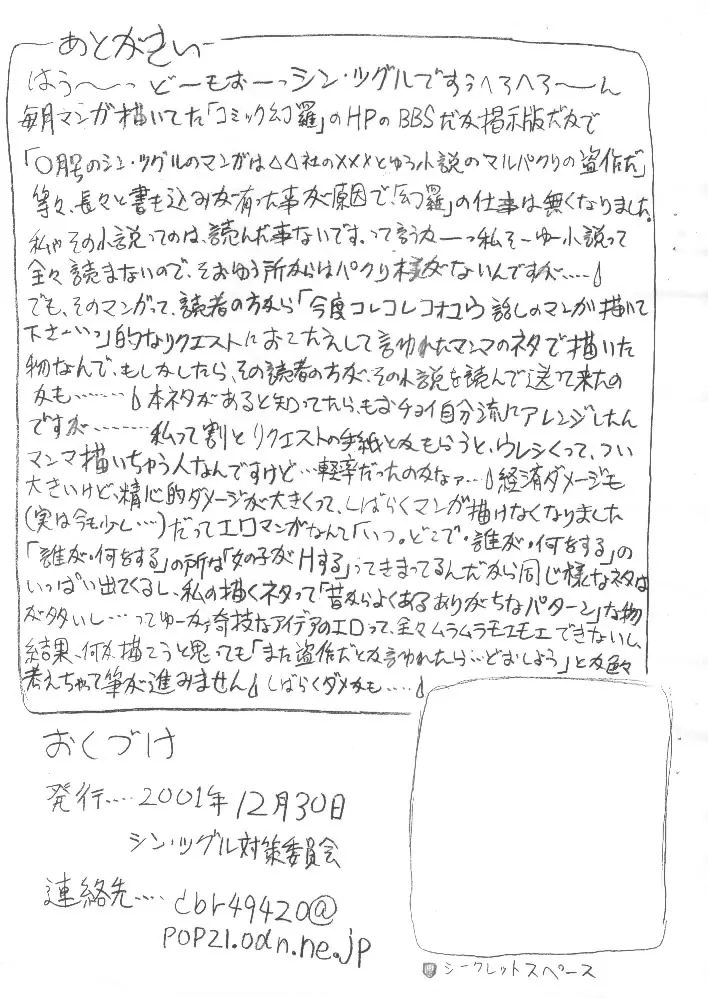 あとがきぃ
はう〜っ どーもおーっシン・ツグルですぅへろへろ〜ん
毎月マンガ描いてた「コミック幻羅」のHPのBBSだか掲示版だかで
「○月号のシン・ツグルのマンガは△△社の×××とゆう小説のマルパクリの盗作だ」
等々、長々と書き込みが有った事が原因で「幻羅」の仕事は無くなりました。
私ゃその小説ってのは、読んだ事ないです。って言うかーっ私そーゆー小説って
全々読まないので、そおゆう所からはパクり様がないんですが……
でも、そのマンガって、読者の方から「今度コレコレコオユウ話しのマンガ描いて
下さーい」的なリクエストにおこたえして言われたマンマのネタで描いた
物なんで、もしかしたら、その読者の方が、その小説を読んで送って来たの
かも……… 本ネタがあると知ってたら、もおチョイ自分流にアレンジしたん
ですが……… 私って割とリクエストの手紙とかもらうと、ウレシくって、つい
マンマ描いちゃう人なんですけど…軽率だったのかなァ… 経済ダメージも
大きいけど、精心的ダメージが大きくって、しばらくマンガ描けなくなりました
(実は今も少し…)だってエロマンガなんて「いつ。どこで・誰が・何をする」の
「誰が・何をする」の所は「女の子がHする」ってきまってるんだから同じ様なネタは
いっぱい出てくるし、私の描くネタって「昔からよくあるありがちなパターン」な物
が多いし…ってゆーか、奇技なアイデアのエロって、全々ムラムラモエモエできないし、
結果、何か描こうと思っても「また盗作だとか言われたら…どおしよう」とか色々
考えちゃって筆が進みません しばらくダメかも……
おくづけ
発行…. 2001年12月30日
シン・ツグル対策委員会
連絡先…. cbr49420@
POP21.odn.ne.jp
シークレットスペース